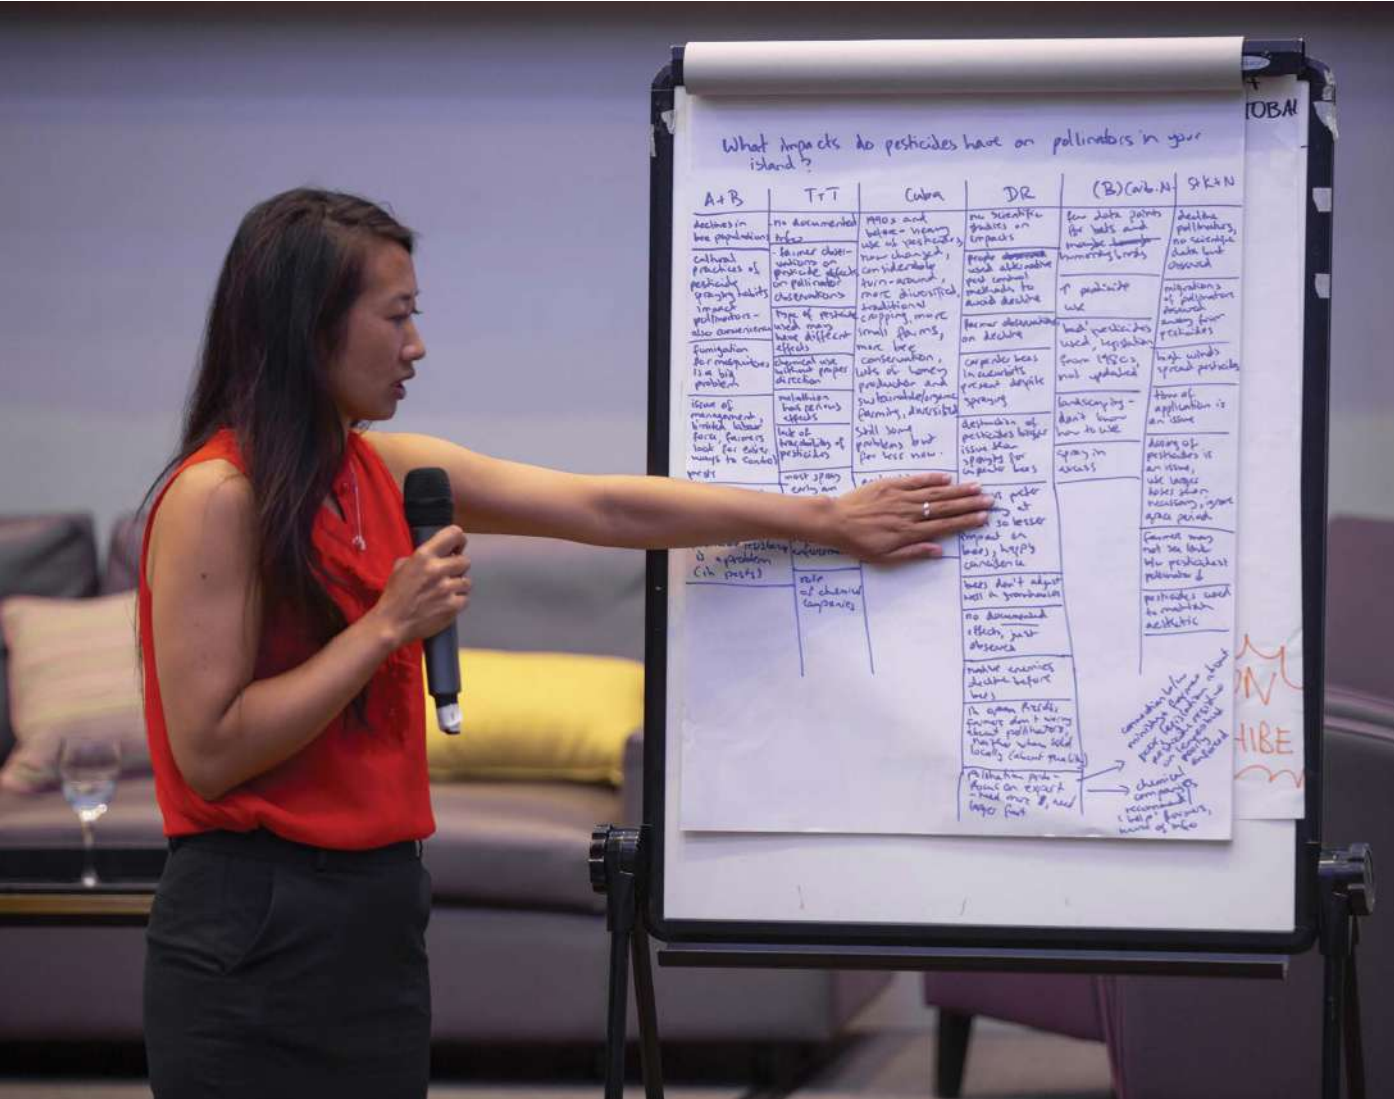 What impacts do pesticides have on pollinators in your
island?
A+B
declines in
bee populations
cultural
practices of
pesticide
spraying habits
impact
pollinators -
also convenience
fumigation
for mosquitoes
is a big
problem
issue of
management,
limited labour
force, farmers
look for easier
ways to control
pests
is a problem
(in pests)
T+T
no documented
info
- farmer obser-
vations on
pesticide effects
on pollinator
observations
type of pesticide
used may
have different
effects
chemical use
without proper
direction
malathion
has serious
effects
lack of
traceability of
pesticides
most spray
early am
role
of chemical
companies
Cuba
1990s and
before - heavy
use of pesticides,
now changed,
considerable
turn-around,
more diversified,
traditional
cropping, more
small farms,
more bee
conservation,
lots of honey
production and
sustainable/organic
farming, diversified
still some
problems but
far less now.
DR
no scientific
studies on
impacts
people
used alternative
pest control
methods to
avoid decline
farmer observations
on decline
carpenter bees
in cucurbits
present despite
spraying
destruction of
pesticides bigger
issue than
spraying for
carpenter bees
at
so lesser
impact on
bees, happy
coincidence
bees don't adjust
well in greenhouses
no documented
effects, just
observed
native enemies
decline before
bees
in open fields,
farmers don't worry
about pollinators,
neither when sold
locally (about quality)
focus on export
- need more $, need
larger fruit
(B) Carib. N.
few data points
for bats and
hummingbirds
↑ pesticide
use
'bad' pesticides
used, legislation
from 1980s,
not updated
landscaping -
don't know
how to use
spray in
excess
St K+N
decline
pollinators,
no scientific
data but
observed
migrations
of pollinators
away from
pesticides
high winds
spread pesticides
time of
application is
an issue
dosing of
pesticides is
an issue,
use larger
doses than
necessary, ignore
grace period
farmers may
not see link
b/w pesticides +
pollinator ↓
pesticides used
to maintain
aesthetic
connection b/w
ministries, farmers
poor legislation about
poorly
enforced
chemical
companies
recommend
'help' farmers,
kind of info
TOBA
ON
HIBE